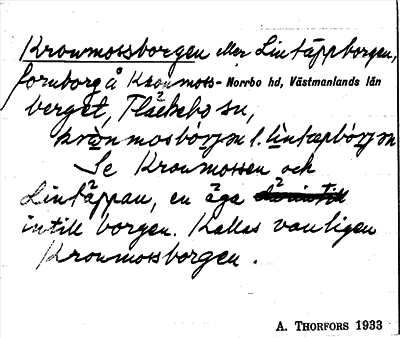 Kronmossborgen eller Lintäppborgen,
fornborg å Kronmoss- Norrbo hd, Västmanlands län
berget, Fläckebo sn,
Se Kronmossen och
Lintäppan, en äga
intill borgen. Kallas vanligen
Kronmossborgen.
A. THORFORS 1933